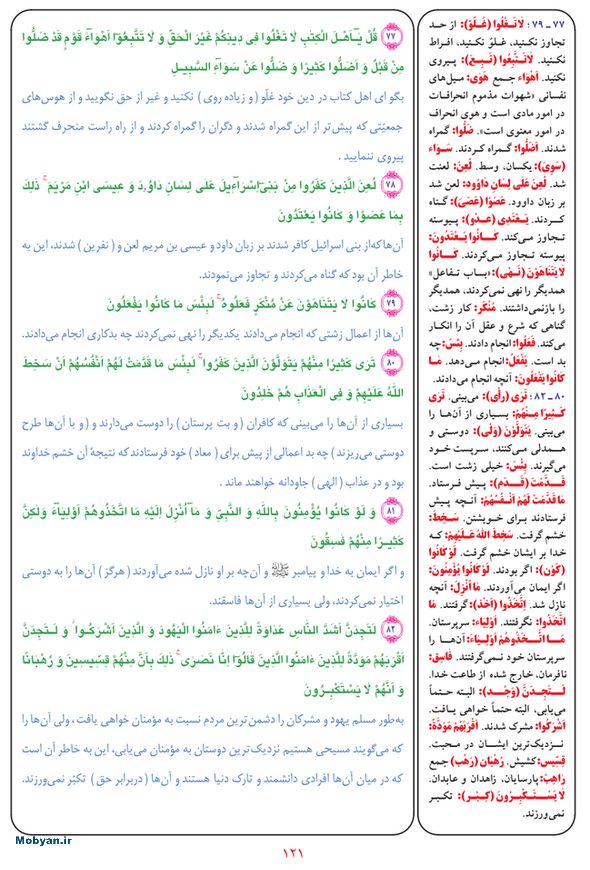 ۷۷ قُلْ يـٰٓأَهْلَ الْكِتٰبِ لَا تَغْلُوا فِى دِينِكُمْ غَيْرَ الْحَقِّ وَ لَا تَتَّبِعُوٓا أَهْوَآءَ قَوْمٍ قَدْ ضَلُّوا
مِنْ قَبْلُ وَ أَضَلُّوا كَثِيرًا وَ ضَلُّوا عَنْ سَوَآءِ السَّبِيـلِ
بگو ای اهل کتاب در دین خود غلّو ( و زیاده روی ) نکنید و غیر از حق نگویید و از هوس‌های
جمعیّتی که پیش‌تر از این گمراه شدند و دگران را گمراه کردند و از راه راست منحرف گشتند
پیروی ننمایید .
۷۸ لُعِنَ الَّذِينَ كَفَرُوا مِنْ بَنِىٓ إِسْرَآءِيلَ عَلَى لِسَانِ دَاوُ,دَ وَ عِيسَى ابْنِ مَرْيَمَ ۚ ذٰلِكَ
بِمَا عَصَوْا وَ كَانُوا يَعْتَدُونَ
آن‌ها که از بنی اسرائیل کافر شدند بر زبان داود و عیسی بن مریم لعن و ( نفرین ) شدند، این به
خاطر آن بود که گناه می‌کردند و تجاوز می‌نمودند.
۷۹ كَانُوا لَا يَتَنَاهَوْنَ عَنْ مُنْكَرٍ فَعَلُوهُ ۚ لَبِئْسَ مَا كَانُوا يَفْعَلُونَ
آن‌ها از اعمال زشتی که انجام می‌دادند یکدیگر را نهی نمی‌کردند چه بدکاری انجام می‌دادند.
۸۰ تَرَى كَثِيرًا مِنْهُمْ يَتَوَلَّوْنَ الَّذِينَ كَفَرُوا ۚ لَبِئْسَ مَا قَدَّمَتْ لَهُمْ أَنْفُسُهُمْ أَنْ سَخِطَ
اللهُ عَلَيْهِمْ وَ فِى الْعَذَابِ هُمْ خٰلِدُونَ
بسیاری از آن‌ها را می‌بینی که کافران ( و بت پرستان ) را دوست می‌دارند و ( و با آن‌ها طرح
دوستی می‌ریزند ) چه بد اعمالی از پیش برای ( معاد ) خود فرستادند که نتیجۀ آن خشم خداوند
بود و در عذاب ( الهی ) جاودانه خواهند ماند .
۸۱ وَ لَوْ كَانُوا يُؤْمِنُونَ بِاللهِ وَ النَّبِىِّ وَ مَآ أُنْزِلَ إِلَيْهِ مَا اتَّخَذُوهُمْ أَوْلِيَآءَ وَلٰكِنَّ
كَثِيـرًا مِنْهُمْ فٰسِقُونَ
و اگر ایمان به خدا و پیامبر ﷺ و آن‌چه بر او نازل شده می‌آوردند ( هرگز ) آن‌ها را به دوستی
اختیار نمی‌کردند، ولی بسیاری از آن‌ها فاسقند.
۸۲ لَتَجِدَنَّ أَشَدَّ النَّاسِ عَدَاوَةً لِلَّذِينَ ءَامَنُوا الْيَهُودَ وَ الَّذِينَ أَشْرَكُوا ۖ وَ لَتَجِدَنَّ
أَقْرَبَهُمْ مَوَدَّةً لِلَّذِينَ ءَامَنُوا الَّذِينَ قَالُوٓا إِنَّا نَصٰرَى ۚ ذٰلِكَ بِأَنَّ مِنْهُمْ قِسِّيسِينَ وَ رُهْبَانًا
وَ أَنَّهُمْ لَا يَسْتَكْبِـرُونَ
به‌طور مسلم یهود و مشرکان را دشمن‌ترین مردم نسبت به مؤمنان خواهی یافت ، ولی آن‌ها را
که می‌گویند مسیحی هستیم نزدیک‌ترین دوستان به مؤمنان می‌یابی، این به خاطر آن است
که در میان آن‌ها افرادی دانشمند و تارک دنیا هستند و آن‌ها ( دربرابر حق ) تکبّر نمی‌ورزند.
۷۷ ـ ۷۹ : لَاتَـغْلُوا (غُلُوّ): از حـد
تجاوز نکنید، غـلوّ نکنید، افراط
نکنید. لَاتَـتَّبِعُوا (تَبِـعَ): پیروی
نکنید. أَهْوَاء جمع هَوَى: میـل‌های
نفسانی «شهوات مذموم انحرافات
در امور مادی است و هوی انحراف
در امور معنوی است». ضَلُّوا: گمراه
شدند. أَضَلُّوا: گمراه کردند. سَـوَاء
(سَوِیَ): یکسان، وسط. لُعِنَ: لعنت
شد. لُعِنَ عَلَى لِسَانِ دَاوُود: لعن شد
بر زبان داوود. عَصَوْا (عَصَیَ): گـناه
کـردند. یَـعْتَدِی (عـدو): پـیوسته
تـجاوز مـی‌کند. كَـانُوا یَـعْتَدُونَ:
پیوسته تـجاوز مـی‌کردند. كَـانُوا
لَا یَتَنَاهَوْنَ (نَـهْی): «بـاب تـفاعل»
همدیگر را نهی نمی‌کردند، همدیگر
را بازنمی‌داشتند. مُنْكَر: کار زشت،
گناهی که شرع و عقل آن را انکـار
می‌کند. فَعَلُوا: انجام دادند. بِئْسَ: چه
بد است. یَفْعَلُ: انجام مـی‌دهد. مَـا
كَانُوا یَفْعَلُونَ: آنچه انجام می‌دادند.
۸۰ ـ ۸۲ : تَرَی (رأی): می‌بینی. تَرَی
كَـثِیرًا مِـنْهُمْ: بسیاری از آن‌هـا را
می‌بینی. یَتَوَلَّوْنَ (وَلی): دوستـی و
همـدلی می‌کننـد، سرپرسـت خـود
می‌گیرند. بِئْسَ: خیلی زشت است.
قَـدَّمَتْ (قَـدَم): پـیش فـرستاد.
مَا قَدَّمَتْ لَهُمْ أَنْـفُسُهُمْ: آنـچه پـیش
فرستادند برای خـویشتن. سَـخِطَ:
خشم گرفت. سَخِطَ اللهُ عَلَـیْهِمْ: کـه
خدا بر ایشان خشم گرفت. لَوْ كَانُوا
(كَوْن): اگر بودند. لَوْ كَانُوا یُؤْمِنُونَ:
اگر ایمان می‌آوردند. مَا أُنْزِلَ: آنچه
نازل شد. اِتَّخَذُوا (أَخَذ): گرفتند. مَا
اتَّخَذُوا: نگرفتند. أَوْلِیَاء: سرپرستان.
مَـا اتَّـخَذُوهُمْ أَوْلِـیَاءَ: آن‌هـا را
سرپرستان خود نمـی‌گرفتند. فَاسِق:
نافرمان، خارج شده از طاعت خـدا.
لَـتَجِدَنَّ (وَجَـد): البـته حـتماً
می‌یابی، البته حتماً خواهی یـافت.
أَشْرَكُوا: مشرک شدند. أَقْرَبَهُمْ مَوَدَّةً:
نـزدیک‌ترین ایشـان در مـحبت.
قِسِّیس: کشیش. رُهْبَان (رَهْب) جمع
رَاهِب: پارسایان، زاهدان و عابدان.
لَا یَسْـتَكْبِرُونَ (كِـبْر): تکـبر
نمی‌ورزند.
Mobyan.ir
۱۲۱